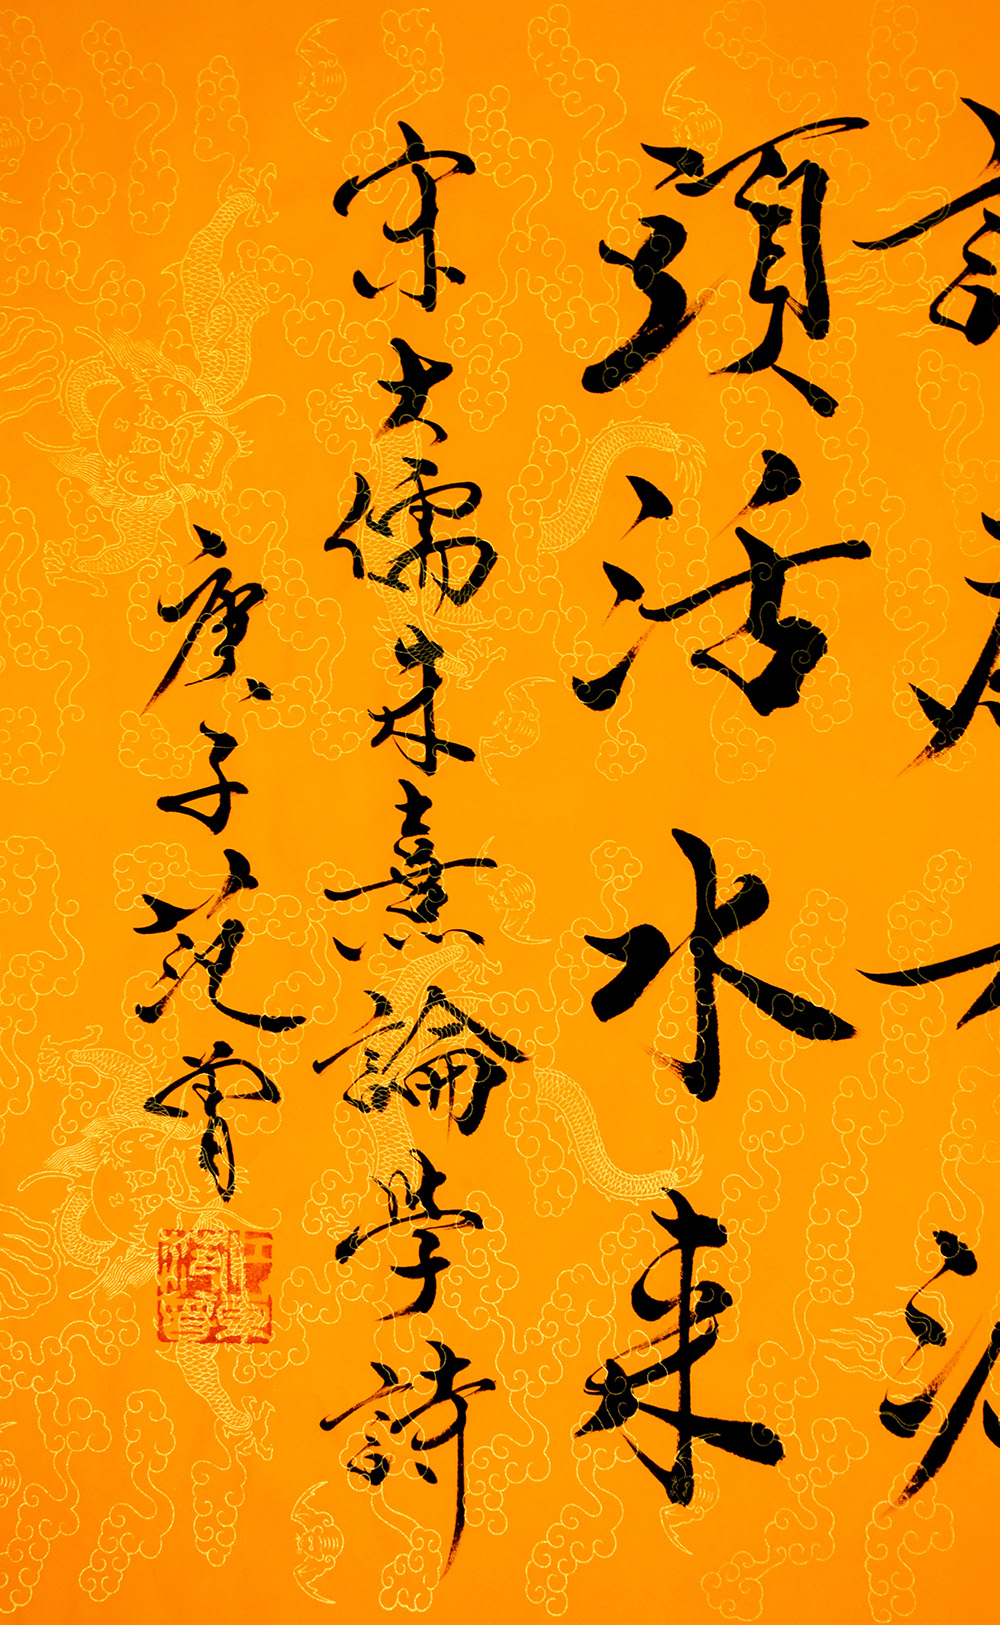 頭活水來
宋大儒朱熹論學詩
庚子范曾